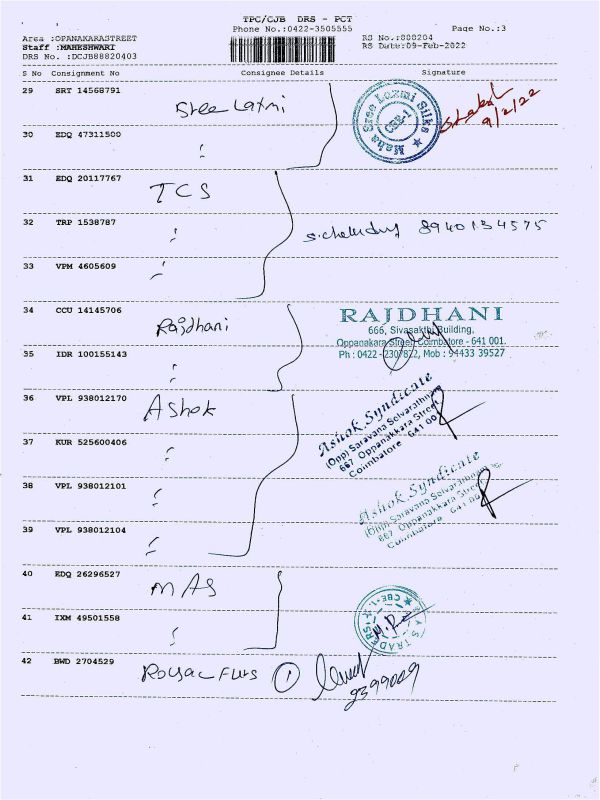 TPC/CJB DRS - PCT
Phone No.:0422-3505555
Page No.:3
Area :OPANAKARASTREET
Staff :MAHESHWARI
DRS No. :DCJB88820403
RS No.:888204
RS Date:09-Feb-2022
S No Consignment No Consignee Details Signature
29 SRT 14568791
Sree Laxmi
Maha Sree Laxmi Silks
CBE-1
9/2/22
30 EDQ 47311500
"
31 EDQ 20117767
TCS
32 TRP 1538787
"
8940134575
33 VPM 4605609
"
34 CCU 14145706
Rajdhani
RAJDHANI
666, Sivasakthi Building,
Oppanakara Street, Coimbatore - 641 001.
Ph : 0422 - 2307822, Mob : 94433 39527
35 IDR 100155143
"
36 VPL 938012170
Ashok
Ashok Syndicate
(Opp) Saravana Selvarathnam
667 Oppanakkara Street
Coimbatore 641 00
37 KUR 525600406
"
38 VPL 938012101
"
Ashok Syndicate
(Opp) Saravana Selvarathnam
667 Oppanakkara Street
Coimbatore 641 00
39 VPL 938012104
"
40 EDQ 26296527
MAS
41 IXM 49501558
"
TRADERS
CBE-1
42 BWD 2704529
Royal Furs 1